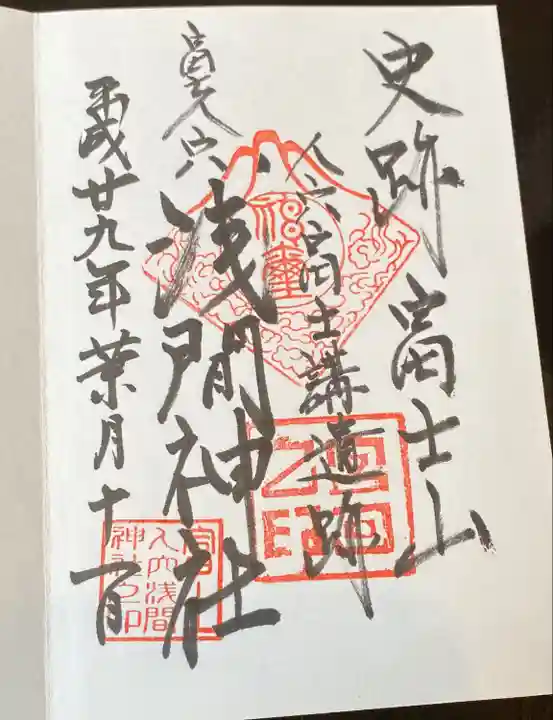 史跡 富士山
人穴富士講遺跡
富士人穴
浅間神社
平成廿九年葉月十一日
富士
人穴浅間
神社之印